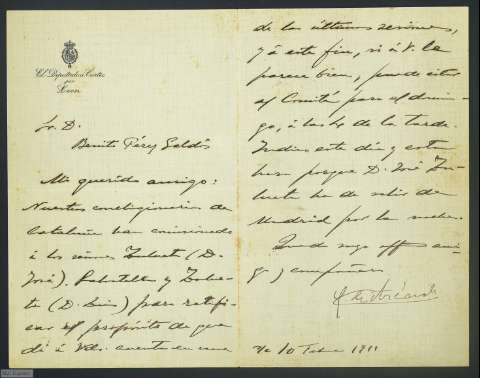 El Diputado a Cortes
por
León
Sr. D.
Benito Pérez Galdós
Mi querido amigo:
Nuestros correligionarios de
Cataluña han comisionado
á los señores Zulueta (D.
José), y Zulue-
ta (D. Luis) para ratifi-
car el propósito de que
dí á Vd. cuenta en una
de las últimas sesiones,
y á este fin, si á V. le
parece bien, puede citar
al Comité para el domin-
go, á las 4 de la tarde.
Indico este día y esta
hora porque D. José Zu-
lueta ha de salir de
Madrid por la noche.
Queda suyo affmo ami-
go y compañero
10 1911